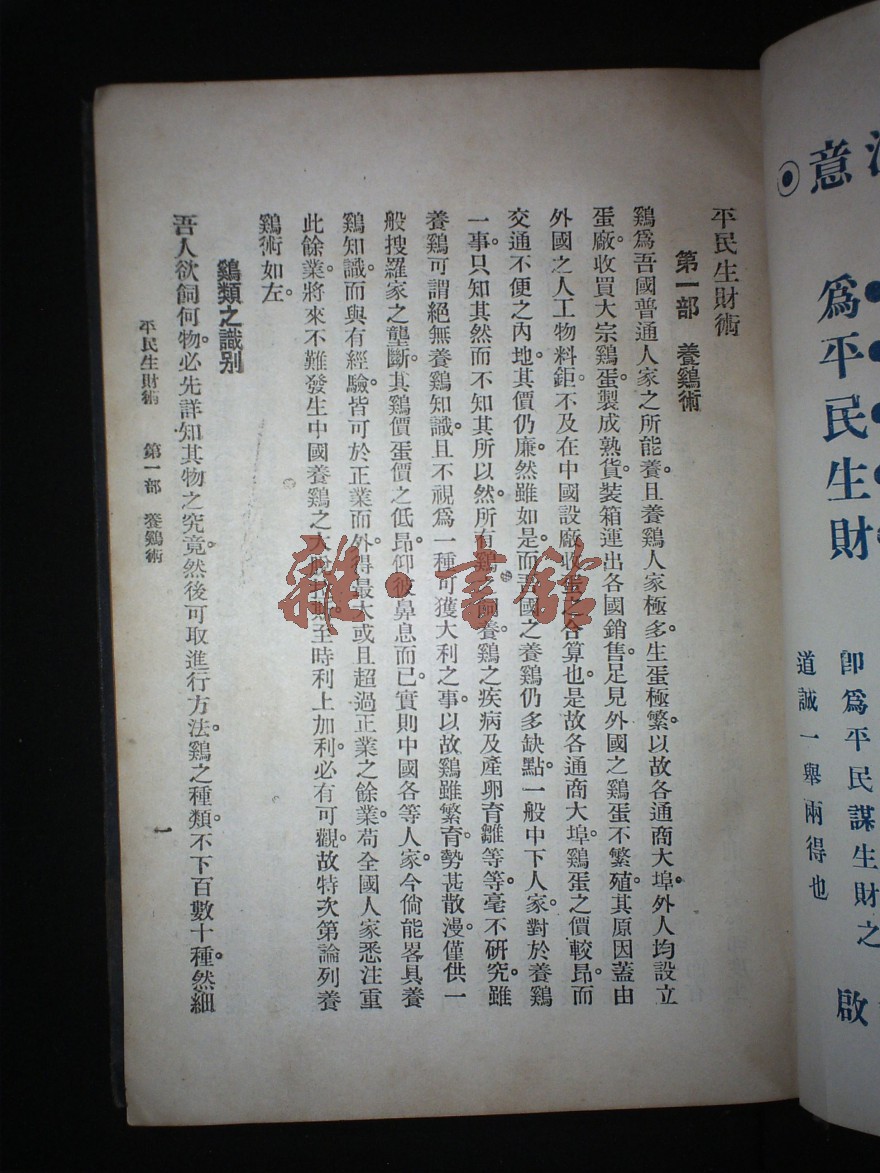 意
爲平民生財
卽爲平民謀生財之
道誠一舉兩得也
啟
平民生財術
第一部 養鷄術
鷄爲吾國普通人家之所能養。且養鷄人家極多。生蛋極繁。以故各通商大埠。外人均設立
蛋廠。收買大宗鷄蛋。製成熟貨。裝箱運出各國銷售。足見外國之鷄蛋不繁殖。其原因蓋由
外國之人工物料鉅。不及在中國設廠收蛋之合算也。是故各通商大埠。鷄蛋之價較昂。而
交通不便之內地。其價仍廉。然雖如是。而吾國之養鷄仍多缺點。一般中下人家。對於養鷄
一事。只知其然而不知其所以然。所有鷄之飼養。鷄之疾病及產卵育雛等等。毫不研究。雖
養鷄可謂絕無養鷄知識。且不視爲一種可獲大利之事。以故鷄雖繁育。勢甚散漫。僅供一
般搜羅家之壟斷。其鷄價蛋價之低昂。仰彼鼻息而已。實則中國各等人家。今倘能畧具養
鷄知識。而與有經驗。皆可於正業而外。得最大或且超過正業之餘業。苟全國人家悉注重
此餘業。將來不難發生中國養鷄之大 至時利上加利。必有可觀。故特次第論列養
鷄術如左。
鷄類之識別
吾人欲飼何物。必先詳知其物之究竟。然後可取進行方法。鷄之種類。不下百數十種。然細
平民生財術 第一部 養鷄術
一
雜·書館